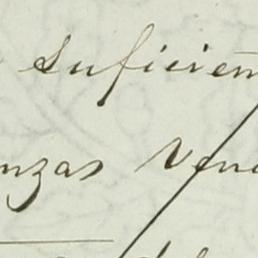 suficien
nzas Vene